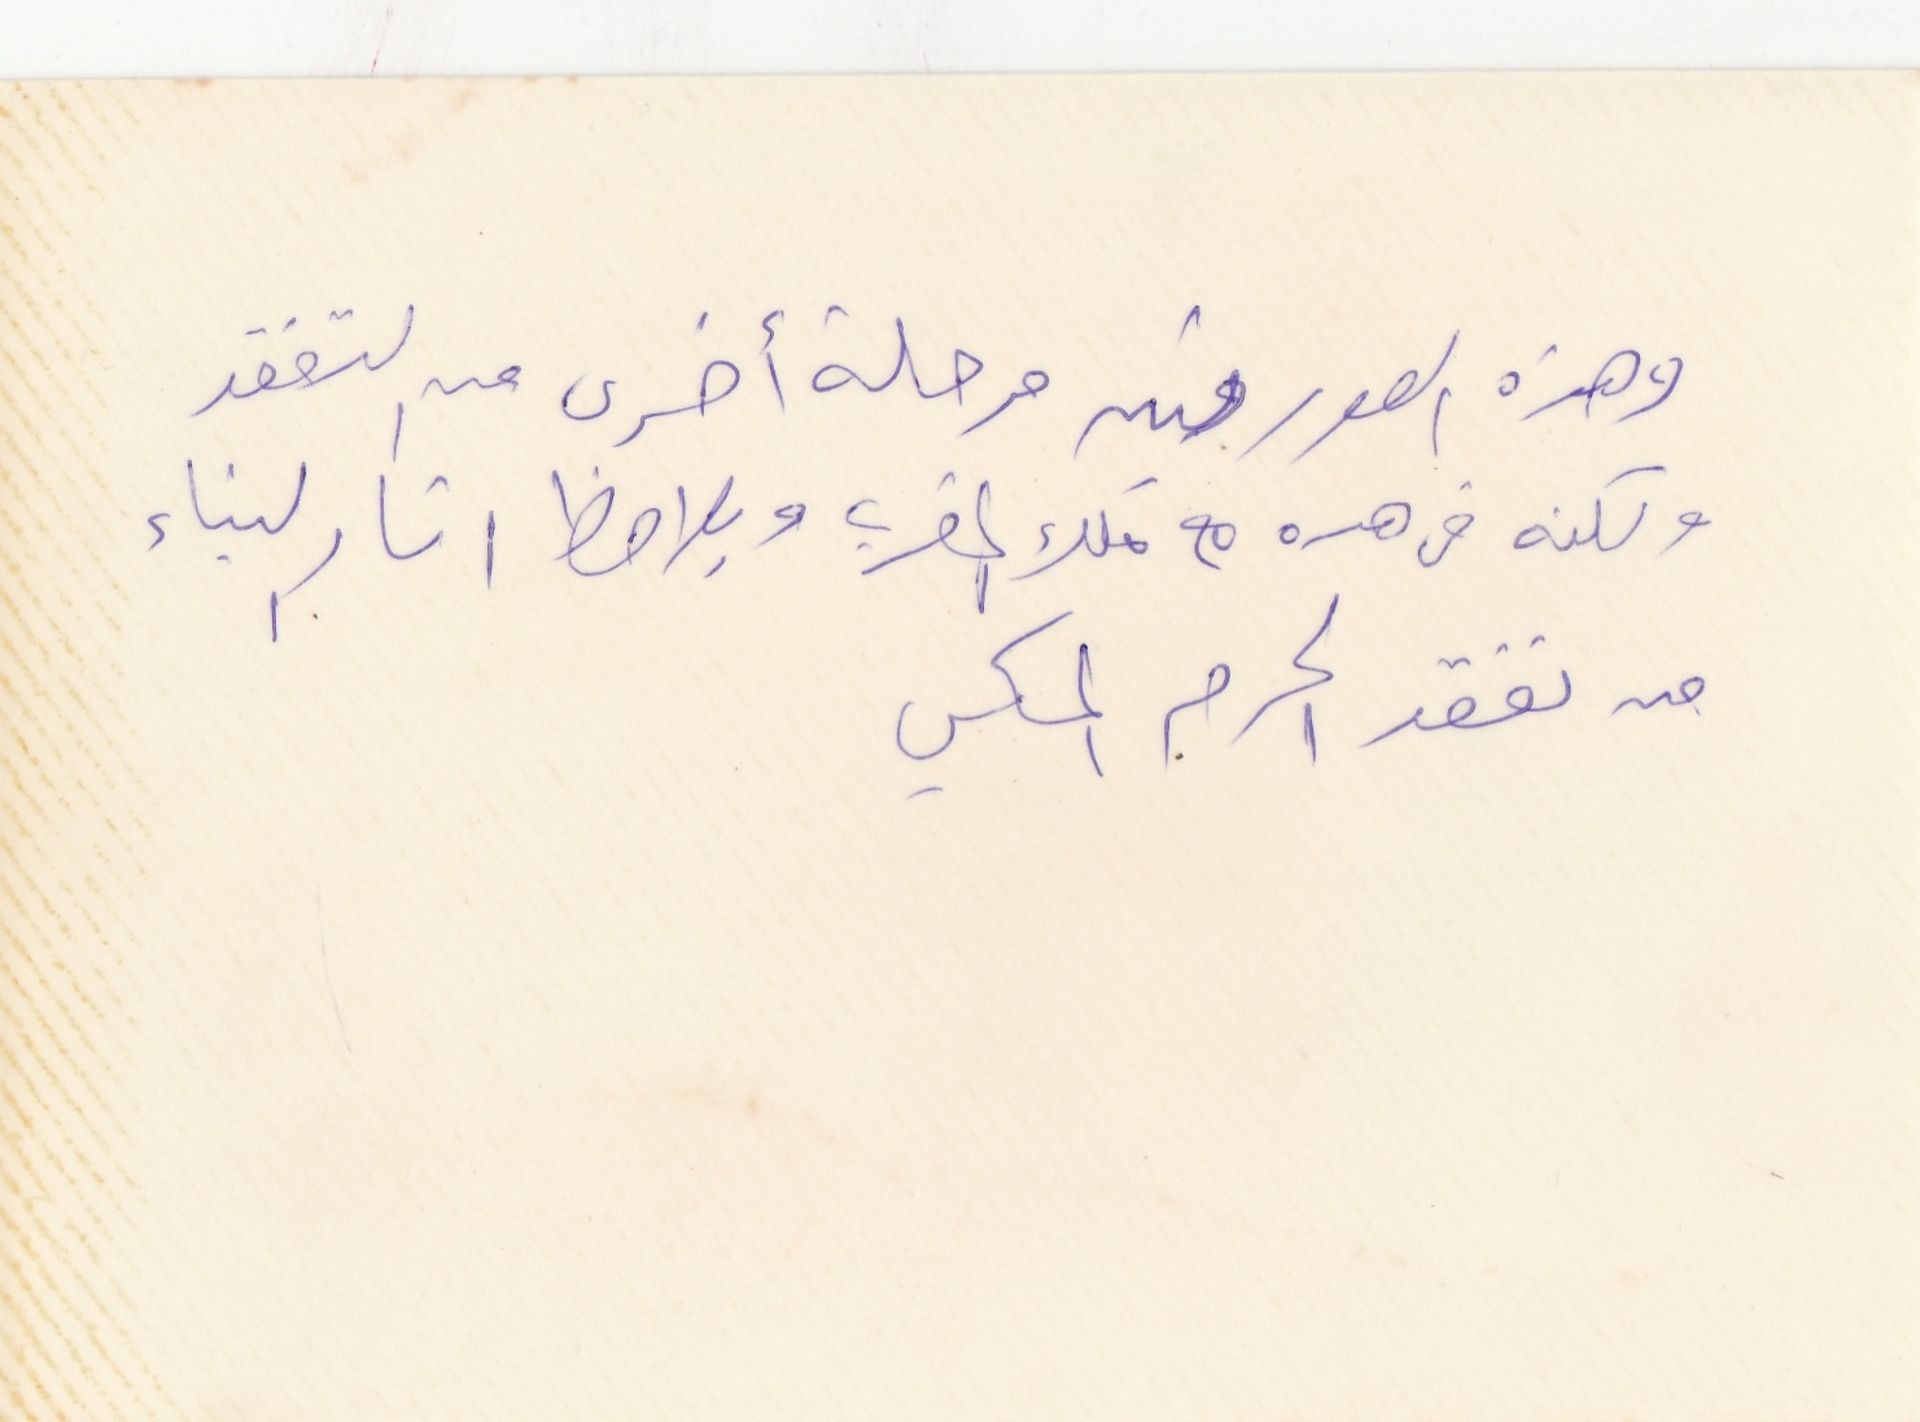 وهذه الصور من مرحلة أخرى من التفقد
ولكنه في هذه مع ملك المغرب ويلاحظ اثار البناء
من تفقد الحرم المكي